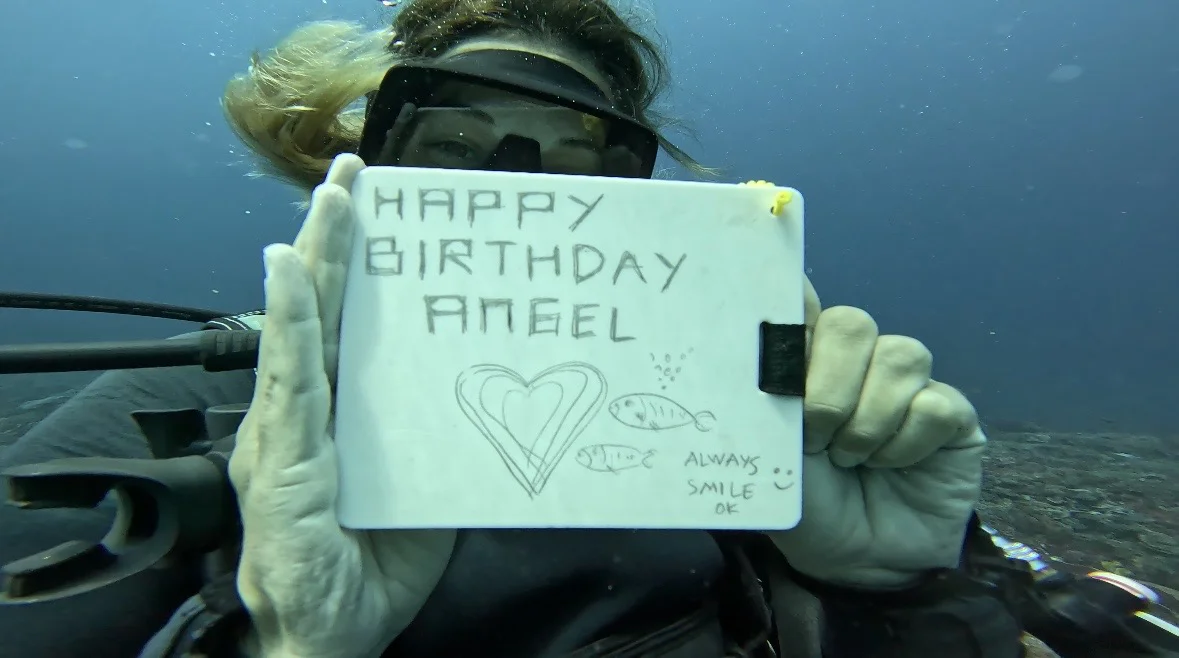 HAPPY
BIRTHDAY
ANGEL
ALWAYS
SMILE
OK